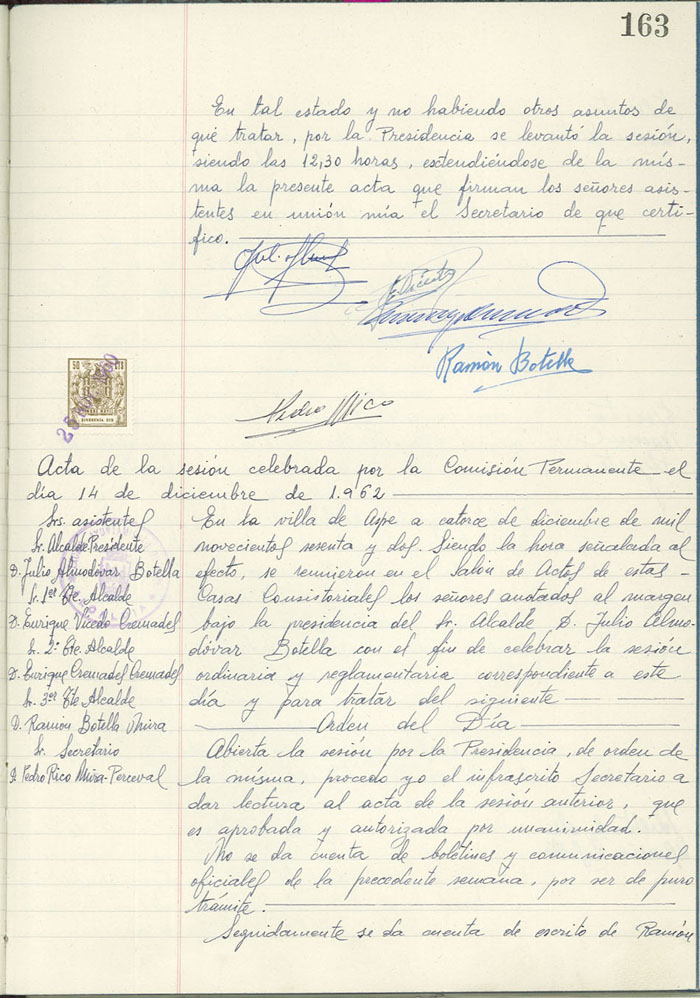 163
En tal estado y no habiendo otros asuntos de
qué tratar, por la Presidencia se levantó la sesión,
siendo las 12,30 horas, extendiéndose de la mís-
ma la presente acta que firman los señores asis-
tentes en unión mía el Secretario de que certi-
fico.
Ramón Botella
50 CTS
Pedro Rico
Acta de la sesión celebrada por la Comisión Permanente el
día 14 de diciembre de 1.962
Srs. asistentes
Sr. Alcalde Presidente
D. Julio Almodóvar Botella
Sr. 1er Tte. Alcalde
D. Enrique Vicedo Cremades
Sr. 2º Tte. Alcalde
D. Enrique Cremades Cremades
Sr. 3er Tte Alcalde
D. Ramón Botella Mira
Sr. Secretario
D. Pedro Rico Mira-Perceval
En la villa de Aspe a catorce de diciembre de mil
novecientos sesenta y dos. Siendo la hora señalada al
efecto, se reunieron en el Salón de Actos de estas
Casas Consistoriales los señores anotados al margen
bajo la presidencia del Sr. Alcalde D. Julio Almo-
dóvar Botella con el fin de celebrar la sesión
ordinaria y reglamentaria correspondiente a este
día y para tratar del siguiente
Orden del Día
Abierta la sesión por la Presidencia, de orden de
la misma, procedo yo el infrascrito Secretario a
dar lectura al acta de la sesión anterior, que
es aprobada y autorizada por unanimidad.
No se da cuenta de boletines y comunicaciones
oficiales de la precedente semana, por ser de puro
trámite.
Seguidamente se da cuenta de escrito de Ramón